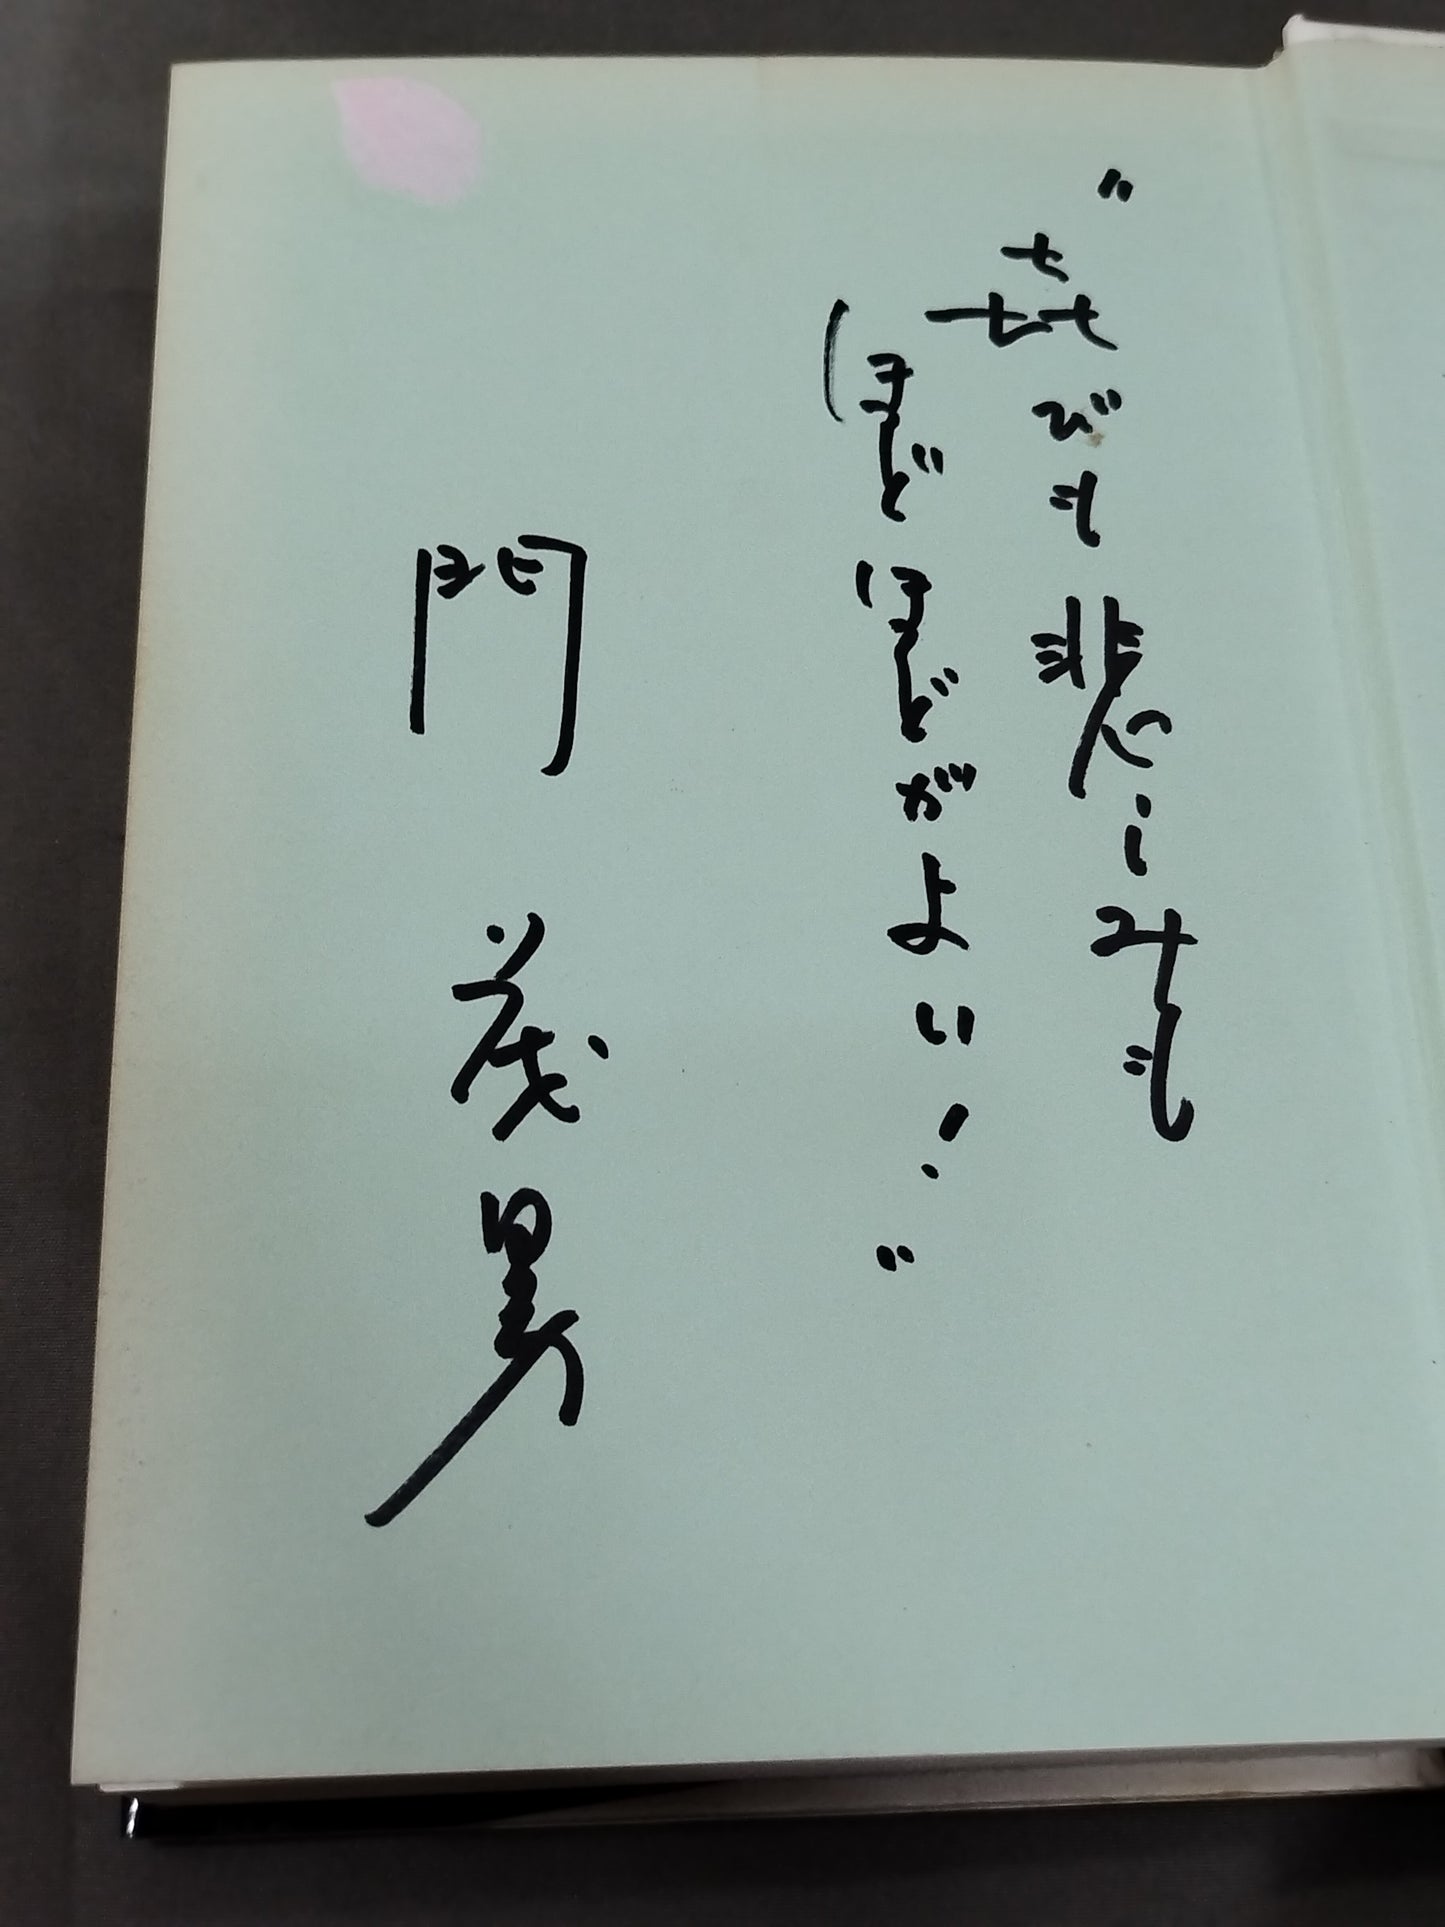 "㐂びも悲しみも
ほどほどがよい!"
門茂男